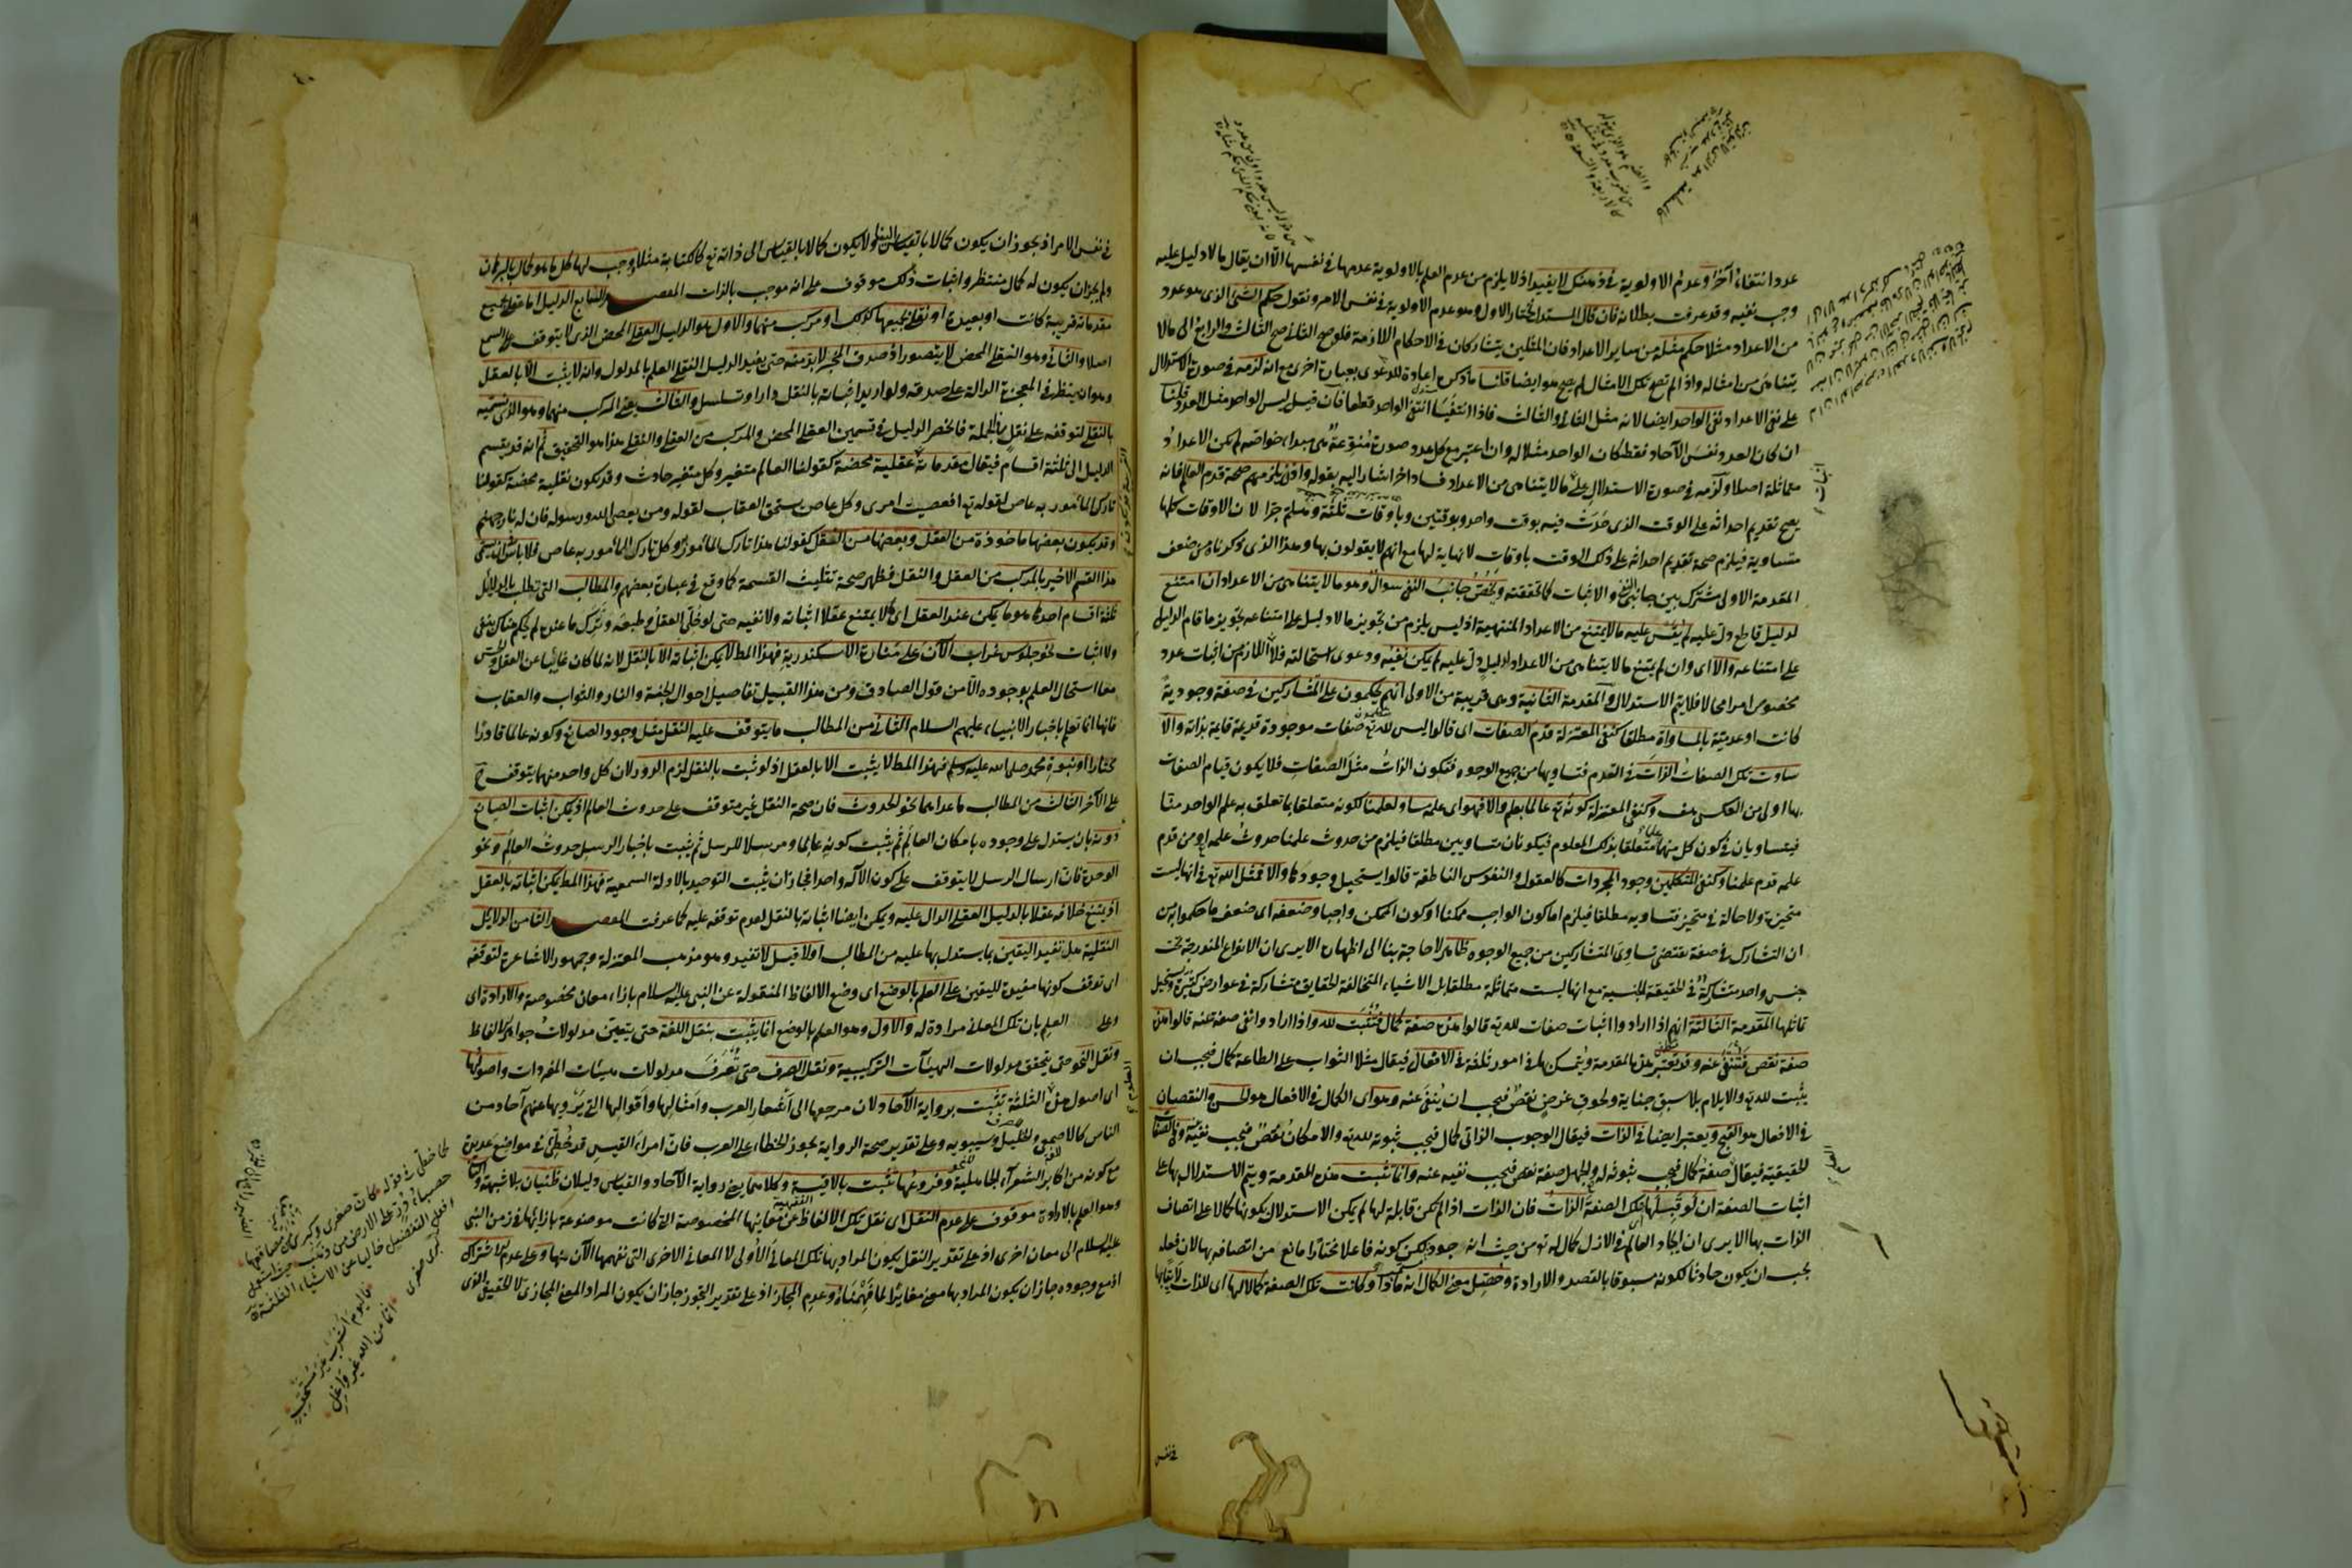 عددا انتفاء آخر وعدم الاولوية في ذهنك لا يفيد اذ لا يلزم من عدم العلم بالاولوية عدمها في نفسها الا ان يقال ما لا دليل عليه
وجب نفيه وقد عرفت بطلانه فان قال المستدل نختار الاول وهو عدم الاولوية في نفس الامر ونقول حكم الشئ الذى هو عدد
من الاعداد مثلا حكم مثله من ساير الاعداد فان المثلين يتشاركان في الاحكام اللازمة فلو صح الثانى صح الثالث والرابع الى ما لا
يتناهى من امثاله واذا لم تصح تلك الامثال لم يصح هو ايضا قلنا ما ذكرتم اعادة للدعوى بعبارة اخرى مع انه لزمه في صورة الاستدلال
على نفى الاعداد نفى الواحد ايضا لانه مثل الثانى والثالث فاذا انتفيا انتفى الواحد قطعا فان قيل ليس الواحد مثل العدد قلنا
ان كان العدد نفس الآحاد فقط كان الواحد مثلا له وان اعتبر مع كل عدد صورة منوعة هى مبداء خواصه لم يكن الاعداد
متماثلة اصلا ولزمه في صورة الاستدلال على ما لا يتناهى من الاعداد فساد اخر اشار اليه بقوله واذن يلزمهم صحة قدم العالم فانه
يصح تقديم احداثه على الوقت الذى حدث فيه بوقت واحد وبوقتين وباوقات ثلثة وهلم جرا لان الاوقات كلها
متساوية فيلزم صحة تقديم احداثه على ذلك الوقت باوقات لا نهاية لها مع انهم لا يقولون بها وهذا الذى ذكرناه من ضعف
المقدمة الاولى مشترك بين جانبى النفى والاثبات كما تحققته ويخص جانب النفى سوال وهو ما لا يتناهى من الاعداد ان امتنع
لدليل قاطع دل عليه لم يقس عليه ما لا يمتنع من الاعداد المنتهية اذ ليس يلزم من تجويز ما لا دليل على امتناعه تجويز ما قام الدليل
على امتناعه والا اى وان لم يمتنع ما لا يتناهى من الاعداد لدليل دل عليه لم يكن نفيه ودعوى استحالته فلا اللازم من اثبات عدد
مخصوص امرا محالا فلا يتم الاستدلال والمقدمة الثانية وهى قريبة من الاولى انهم يحكمون على المتشاركين في صفة وجودية
كانت او عدمية بالمساواة مطلقا كنفى المعتزلة قدم الصفات اى قالوا ليس لله تع صفات موجودة قديمة قايمة بذاته والا
ساوت تلك الصفات الذات في القدم فتساويها من جميع الوجوه فتكون الذات مثل الصفات فلا يكون قيام الصفات
بها اولى من العكس هف وكنفى المعتزلة كونه تع عالما بعلم والا فهو اى علمه مساو لعلمنا لكونه متعلقا بما تعلق به علم الواحد منا
فيتساويان في كون كل منهما متعلقا بذلك المعلوم فيكونان متساويين مطلقا فيلزم من حدوث علمنا حدوث علمه او من قدم
علمه قدم علمنا وكنفى المتكلمين وجود المجردات كالعقول والنفوس الناطقة قالوا يستحيل وجودها والا فمثل الله تع في انها ليست
متحيزة ولا حالة في متحيز فتساويه مطلقا فيلزم اما كون الواجب ممكنا او كون الممكن واجبا وضعفه اى ضعف ما حكموا به من
ان التشارك في صفة تقتضى تساوى المتشاركين من جميع الوجوه ظاهر لا حاجة بنا الى اظهاره الا يرى ان الانواع المندرجة تحت
جنس واحد متشاركة في الحقيقة الجنسية مع انها ليست متماثلة مطلقا بل الاشياء المتخالفة الحقايق متشاركة في عوارض كثيرة
المقدمة الثالثة انهم اذا ارادوا اثبات صفات لله تع قالوا هذه صفة كمال فتثبت لله واذا ارادوا نفى صفة عنه قالوا هذه
صفة نقص فتنتفى عنه وقد تعتبر هذه المقدمة ويتمسك بها في امور ثلثة في الافعال فيقال مثلا الثواب على الطاعة كمال فيجب ان
يثبت لله تع والايلام بلا سبق جناية ولحوق عوض نقص فيجب ان ينفى عنه وهو اى الكمال في الافعال هو الحسن والنقصان
في الافعال هو القبح ويعتبر ايضا في الذات فيقال الوجوب الذاتى كمال فيجب ثبوته لله تع والامكان نقص فيجب نفيه وفى الصفات
الحقيقية فيقال صفة كمال فيجب ثبوته له والجهل صفة نقص فيجب نفيه عنه وانما تثبت هذه المقدمة ويتم الاستدلال بها على
اثبات الصفة ان لو قبلها تلك الصفة الذات فان الذات اذا لم تكن قابلة لها لم يكن الاستدلال بكونها كمالا على اتصاف
الذات بها الا يرى ان ايجاد العالم في الازل كمال له تع من حيث انه جود لكن كونه فاعلا مختارا مانع من اتصافه بها لان فعله
يجب ان يكون حادثا لكونه مسبوقا بالقصد والارادة وحصل معنى الكمال انه ماذا وكانت تلك الصفة كمالا لها اى للذات
في نفس
في نفس الامر اذ يجوز ان يكون كمالا بالقياس الينا ولا يكون كمالا بالقياس الى ذاته تع كالكتابة مثلا وجب لها كل ما هو كمال بالبرهان
ولم يجز ان يكون له كمال منتظر واثبات ذلك موقوف على انه موجب بالذات المقصد السابع الدليل اما عقلى بجميع
مقدماته قريبة كانت او بعيدة او نقلى بجميعها كذلك او مركب منهما والاول هو الدليل العقلى المحض الذى لا يتوقف على السمع
اصلا والثانى وهو النقلى المحض لا يتصور اذ صدق المخبر لا بد منه حتى يفيد الدليل النقلى العلم بالمدلول وانه لا يثبت الا بالعقل
وهو ان ينظر في المعجزة الدالة على صدقه ولو اريد اثباته بالنقل دار او تسلسل والثالث يعنى المركب منهما وهو الذى نسميه
بالنقلى لتوقفه على نقل في الجملة فانحصر الدليل في قسمين العقلى المحض والمركب من العقلى والنقلى هذا هو التحقيق ثم انه قد يقسم
الدليل الى ثلثة اقسام فيقال مقدماته عقلية محضة كقولنا العالم متغير وكل متغير حادث وقد تكون نقلية محضة كقولنا
تارك المأمور به عاص لقوله تع افعصيت امرى وكل عاص يستحق العقاب لقوله ومن يعص الله ورسوله فان له نار جهنم
وقد يكون بعضها ماخوذة من العقل وبعضها من النقل كقولنا هذا تارك المأمور به وكل تارك المأمور به عاص فلا باس ان يسمى
هذا القسم الاخير بالمركب من العقل والنقل فظهر صحة تثليث القسمة كما وقع في عبارة بعضهم والمطالب التى تطلب بالدلائل
ثلثة اقسام احدها هو ما يمكن عند العقل اى لا يمتنع عقلا اثباته ولا نفيه حتى لو خلى العقل وطبعه وترك ما عنده لم يحكم هناك بنفى
ولا اثبات نحو جلوس غراب الآن على منارة الاسكندرية فهذا المطلب لا يمكن اثباته الا بالنقل لانه لما كان غائبا عن العقل والحس
معا استحال العلم بوجوده الا من قول الصادق ومن هذا القبيل تفاصيل احوال الجنة والنار والثواب والعقاب
فانها انما تعلم باخبار الانبياء عليهم السلام الثانى من المطالب ما يتوقف عليه النقل مثل وجود الصانع وكونه عالما قادرا
مختارا ونبوة محمد صلى الله عليه وسلم فهذا المطلب لا يثبت الا بالعقل اذ لو ثبت بالنقل لزم الدور لان كل واحد منهما يتوقف ح
على الآخر الثالث من المطالب ما عداهما نحو الحدوث فان صحة النقل غير متوقف على حدوث العالم اذ يمكن اثبات الصانع
دونه بان يستدل على وجوده بامكان العالم ثم يثبت كونه عالما ومرسلا للرسل ثم يثبت باخبار الرسل حدوث العالم ونحو
الوحدة فان ارسال الرسل لا يتوقف على كون الآله واحدا فجاز ان يثبت التوحيد بالادلة السمعية فهذا المطلب يمكن اثباته بالعقل
اذ يمتنع خلافه عقلا بالدليل العقلى الدال عليه ويمكن ايضا اثباته بالنقل لعدم توقفه عليه كما عرفت المقصد الثامن الدلائل
النقلية هل تفيد اليقين بما يستدل بها عليه من المطالب اولا قيل لا تفيد وهو مذهب المعتزلة وجمهور الاشاعرة لتوقفه
اى توقف كونها مفيدة لليقين على العلم بالوضع اى وضع الالفاظ المنقولة عن النبى عليه السلام بازاء معان مخصوصة والارادة اى
وعلى العلم بان تلك المعانى مرادة له والاول وهو العلم بالوضع انما يثبت بنقل اللغة حتى يتعين مدلولات جواهر الالفاظ
ونقل النحو حتى يتحقق مدلولات الهيئآت التركيبية ونقل الصرف حتى تعرف مدلولات هيئات المفردات واصولها
اى اصول هذه الثلثة تثبت برواية الآحاد لان مرجعها الى أشعار العرب وأمثالها واقوالها التى يرويها عنهم آحاد من
الناس كالاصمعى والخليل وسيبويه وعلى تقدير صحة الرواية يجوز الخطاء على العرب فان امراء القيس قد خطئ في مواضع عديدة
مع كونه من اكابر الشعرآء الجاهلية وفروعها تثبت بالاقيسة وكلاهما يعنى رواية الآحاد والقياس دليلان ظنيان بلا شبهة والثانى
وهو العلم بالارادة موقوف على عدم النقل اى نقل تلك الالفاظ عن معانيها المخصوصة التى كانت موضوعة بازائها في زمن النبى
عليه السلام الى معان اخرى اذ على تقدير النقل يكون المراد بها تلك المعانى الاولى لا المعانى الاخرى التى نفهمها الآن منها وعلى عدم الاشتراك
اذ مع وجوده جاز ان يكون المراد بها معنى مغايرا لما فهمناه وعدم المجاز اذ على تقدير التجوز جاز ان يكون المراد المعنى المجازى لا الحقيقى الذى
كما خطئ في قوله كأن صغرى وكبرى من فقاقعها
حصباء در على الارض من ذهب حيث استعمل
افعل التفضيل خاليا عن الاشياء الثلثة
فاليوم أشرب غير مستحقب
اثما من الله ولا واغل